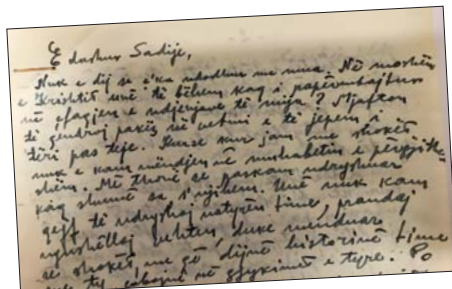 E dashur Sadije,
Nuk e dij se ç'ka ndodhur me mua. Në moshën
e Krishtit unë të bëhem kaq i papërmbajtur
në shfaqjen e ndjenjave të mija? Mjafton
të qendroj pakëz në vetmi e të jepem i
tëri pas teje. Kurse kur jam me shokët
nuk e kam mëndjen në muhabetin e përgjith-
shëm. Më thonë se paskam ndryshuar
kaq shumë sa s'njihem. Unë nuk kam
qejf të ndryshoj natyrën time, prandaj
ngushëlloj vehten, duke menduar
se shokët, me që dijnë historinë time
me ty, gabojnë në gjykimet e tyre. Po